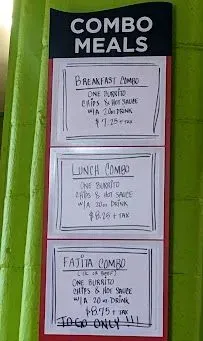 COMBO
MEALS
BREAKFAST COMBO
ONE BURRITO
CHIPS & HOT SAUCE
W/A 20oz DRINK
$7.25 + TAX
LUNCH COMBO
ONE BURRITO
CHIPS & HOT SAUCE
W/A 20oz DRINK
$8.25 + TAX
FAJITA COMBO
(CK or BEEF)
ONE BURRITO
CHIPS & HOT SAUCE
W/A 20oz DRINK
$8.75 + TAX
TO GO ONLY!!!